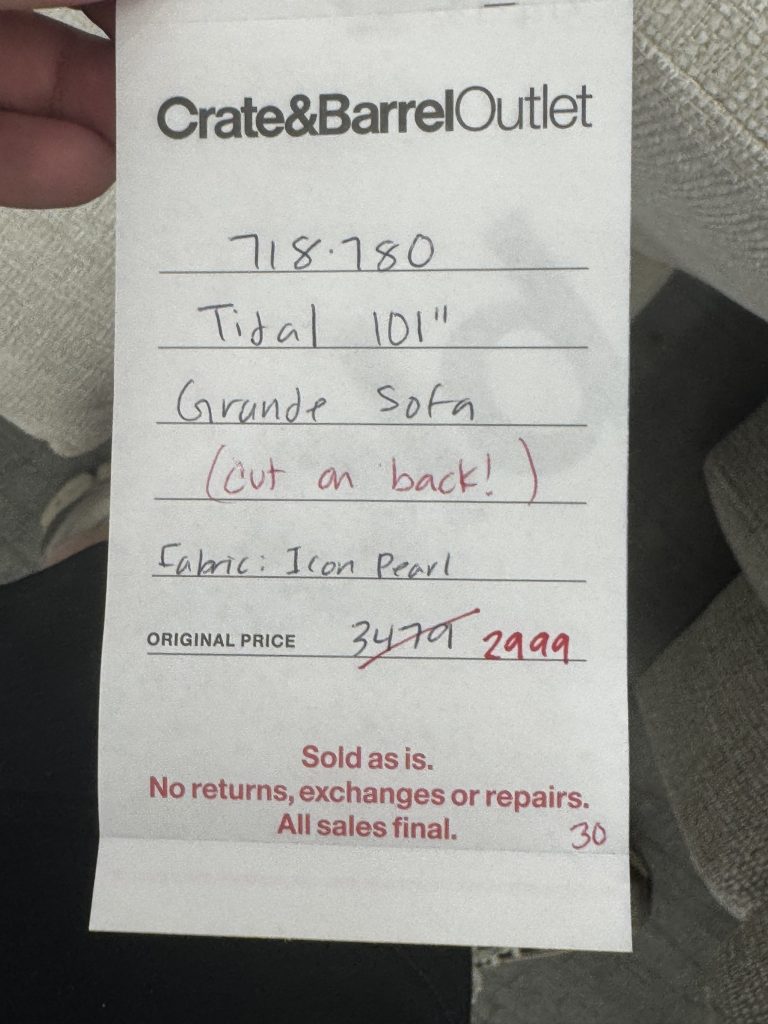 Crate&BarrelOutlet
718.780
Tidal 101"
Grande Sofa
(cut on back!)
Fabric: Icon Pearl
ORIGINAL PRICE 3479 2999
Sold as is.
No returns, exchanges or repairs.
All sales final.
30